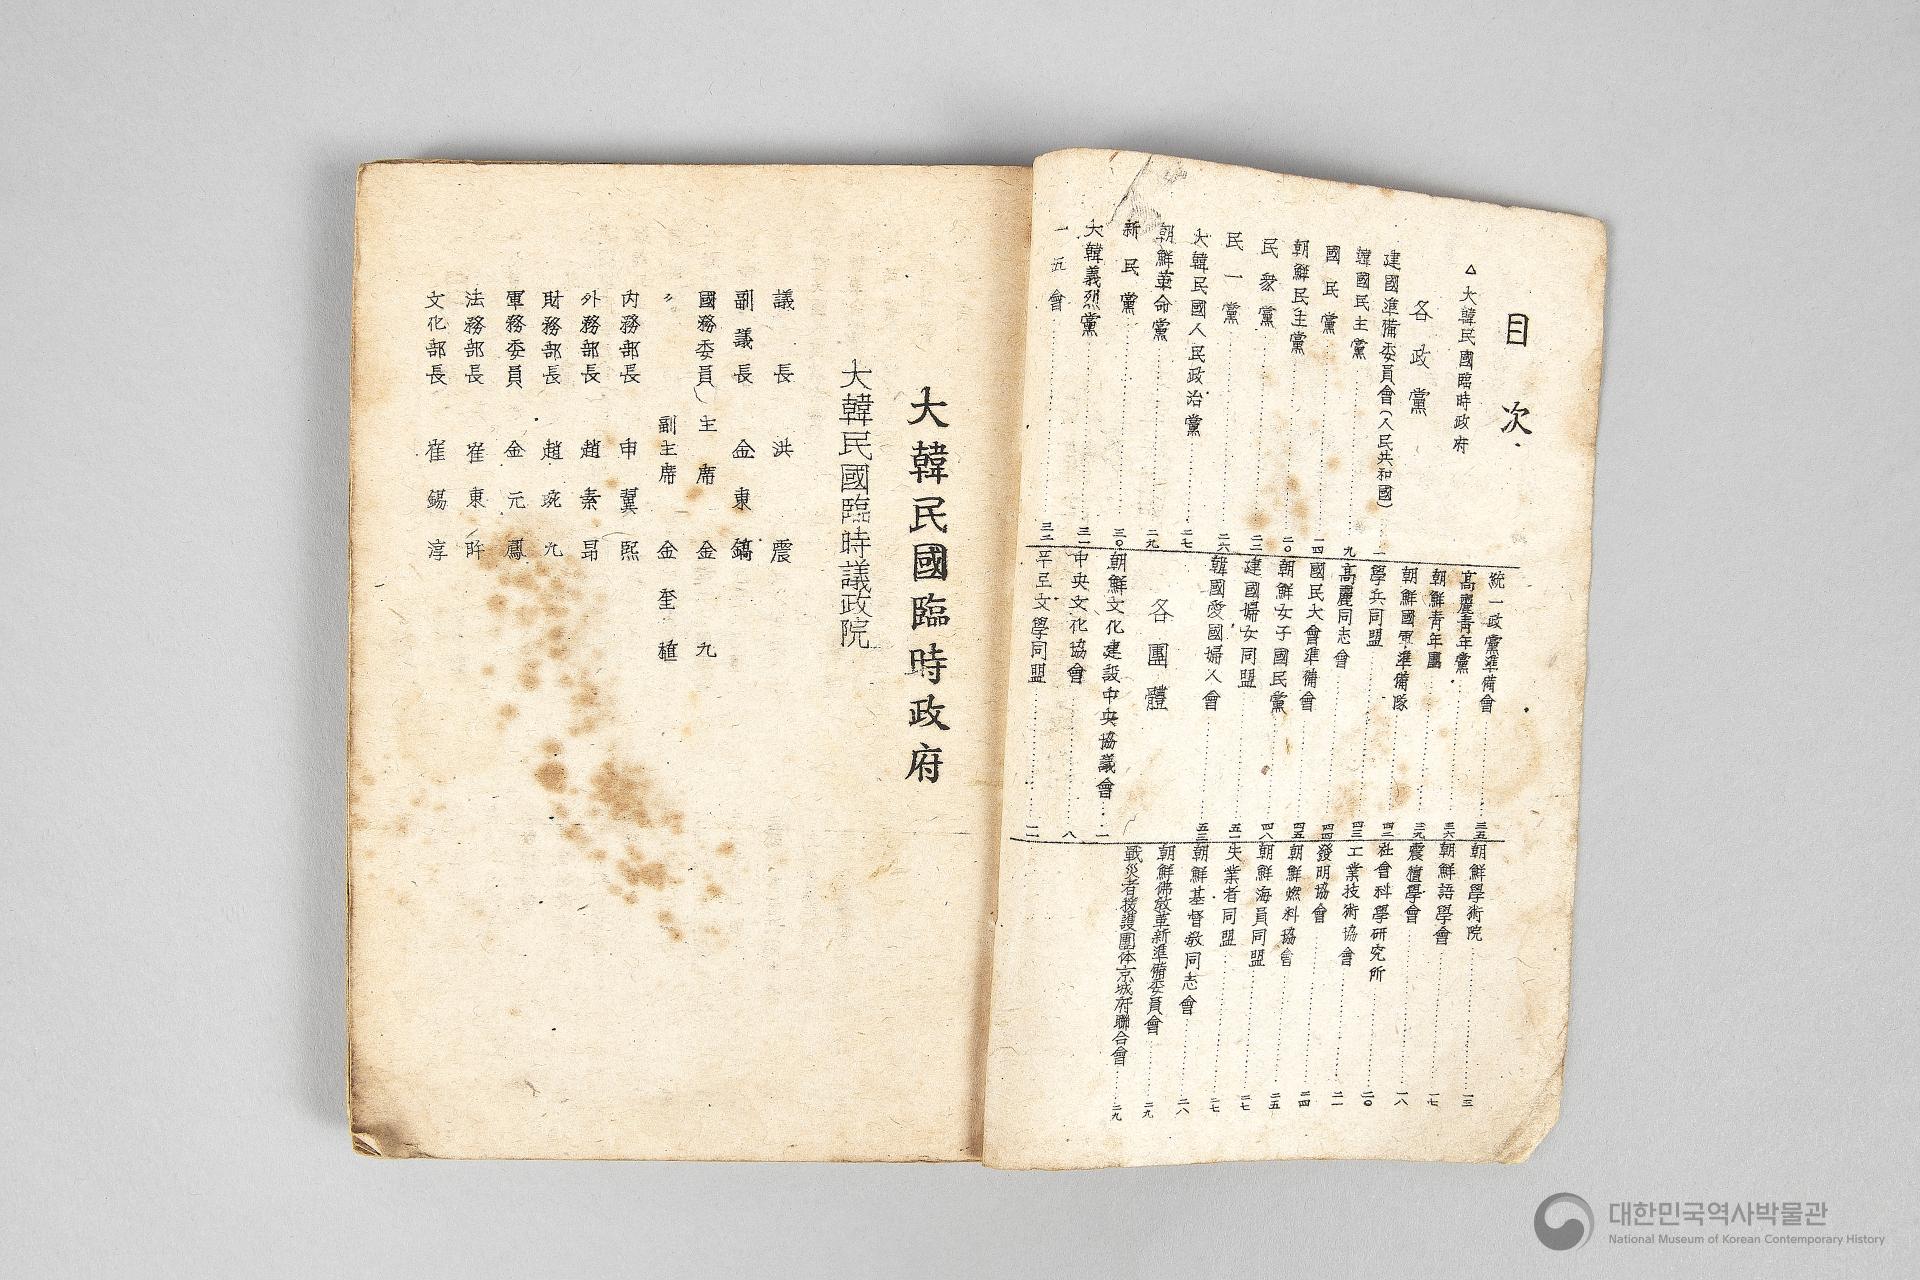 目次
△大韓民國臨時政府
各政黨
建國準備委員會(人民共和國)……一
韓國民主黨……九
國民黨……一四
朝鮮民主黨……二〇
民衆黨……二二
民一黨……二六
大韓民國人民政治黨……二七
朝鮮革命黨……二九
新民黨……三〇
大韓義烈黨……三一
一五會……三二
統一政黨準備會……三五
高麗靑年黨……三六
朝鮮靑年團……三九
朝鮮國軍準備隊……四二
學兵同盟……四三
高麗同志會……四四
國民大會準備會……四五
朝鮮女子國民黨……四八
建國婦女同盟……五一
韓國愛國婦人會……五三
各團體
朝鮮文化建設中央協議會……一
中央文化協會……八
平壬文學同盟……一二
朝鮮學術院……一三
朝鮮語學會……一七
震檀學會……一八
社會科學研究所……二〇
工業技術協會……二一
發明協會……二四
朝鮮燃料協會……二五
朝鮮海員同盟……二七
失業者同盟……二七
朝鮮基督敎同志會……二八
朝鮮佛敎革新準備委員會……二九
戰災者援護團体京城府聯合會……二九
大韓民國臨時政府
大韓民國臨時議政院
議長 洪震
副議長 金東鎬
國務委員(主席 金九
〃 副主席 金奎植
內務部長 申翼熙
外務部長 趙素昻
財務部長 趙琬九
軍務委員 金元鳳
法務部長 崔東旿
文化部長 崔錫淳
대한민국역사박물관
National Museum of Korean Contemporary History